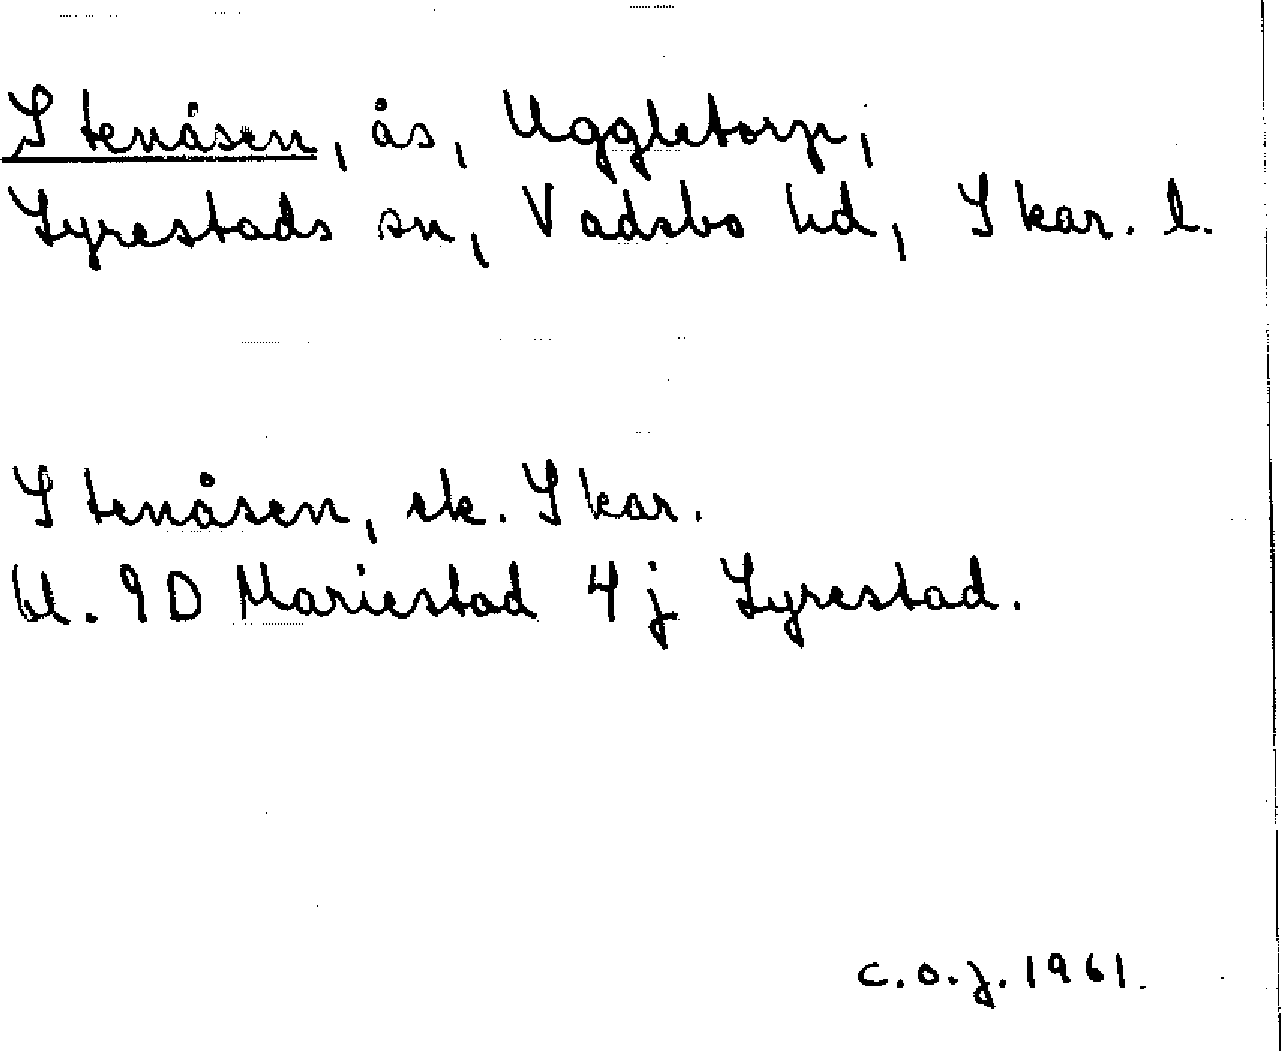 Stenåsen, ås, Uggletorp,
Lyrestads sn, Vadsbo hd, Skar. l.
Stenåsen, ek. Skar.
bl. 9D Mariestad 4j Lyrestad.
C.O.J. 1961.